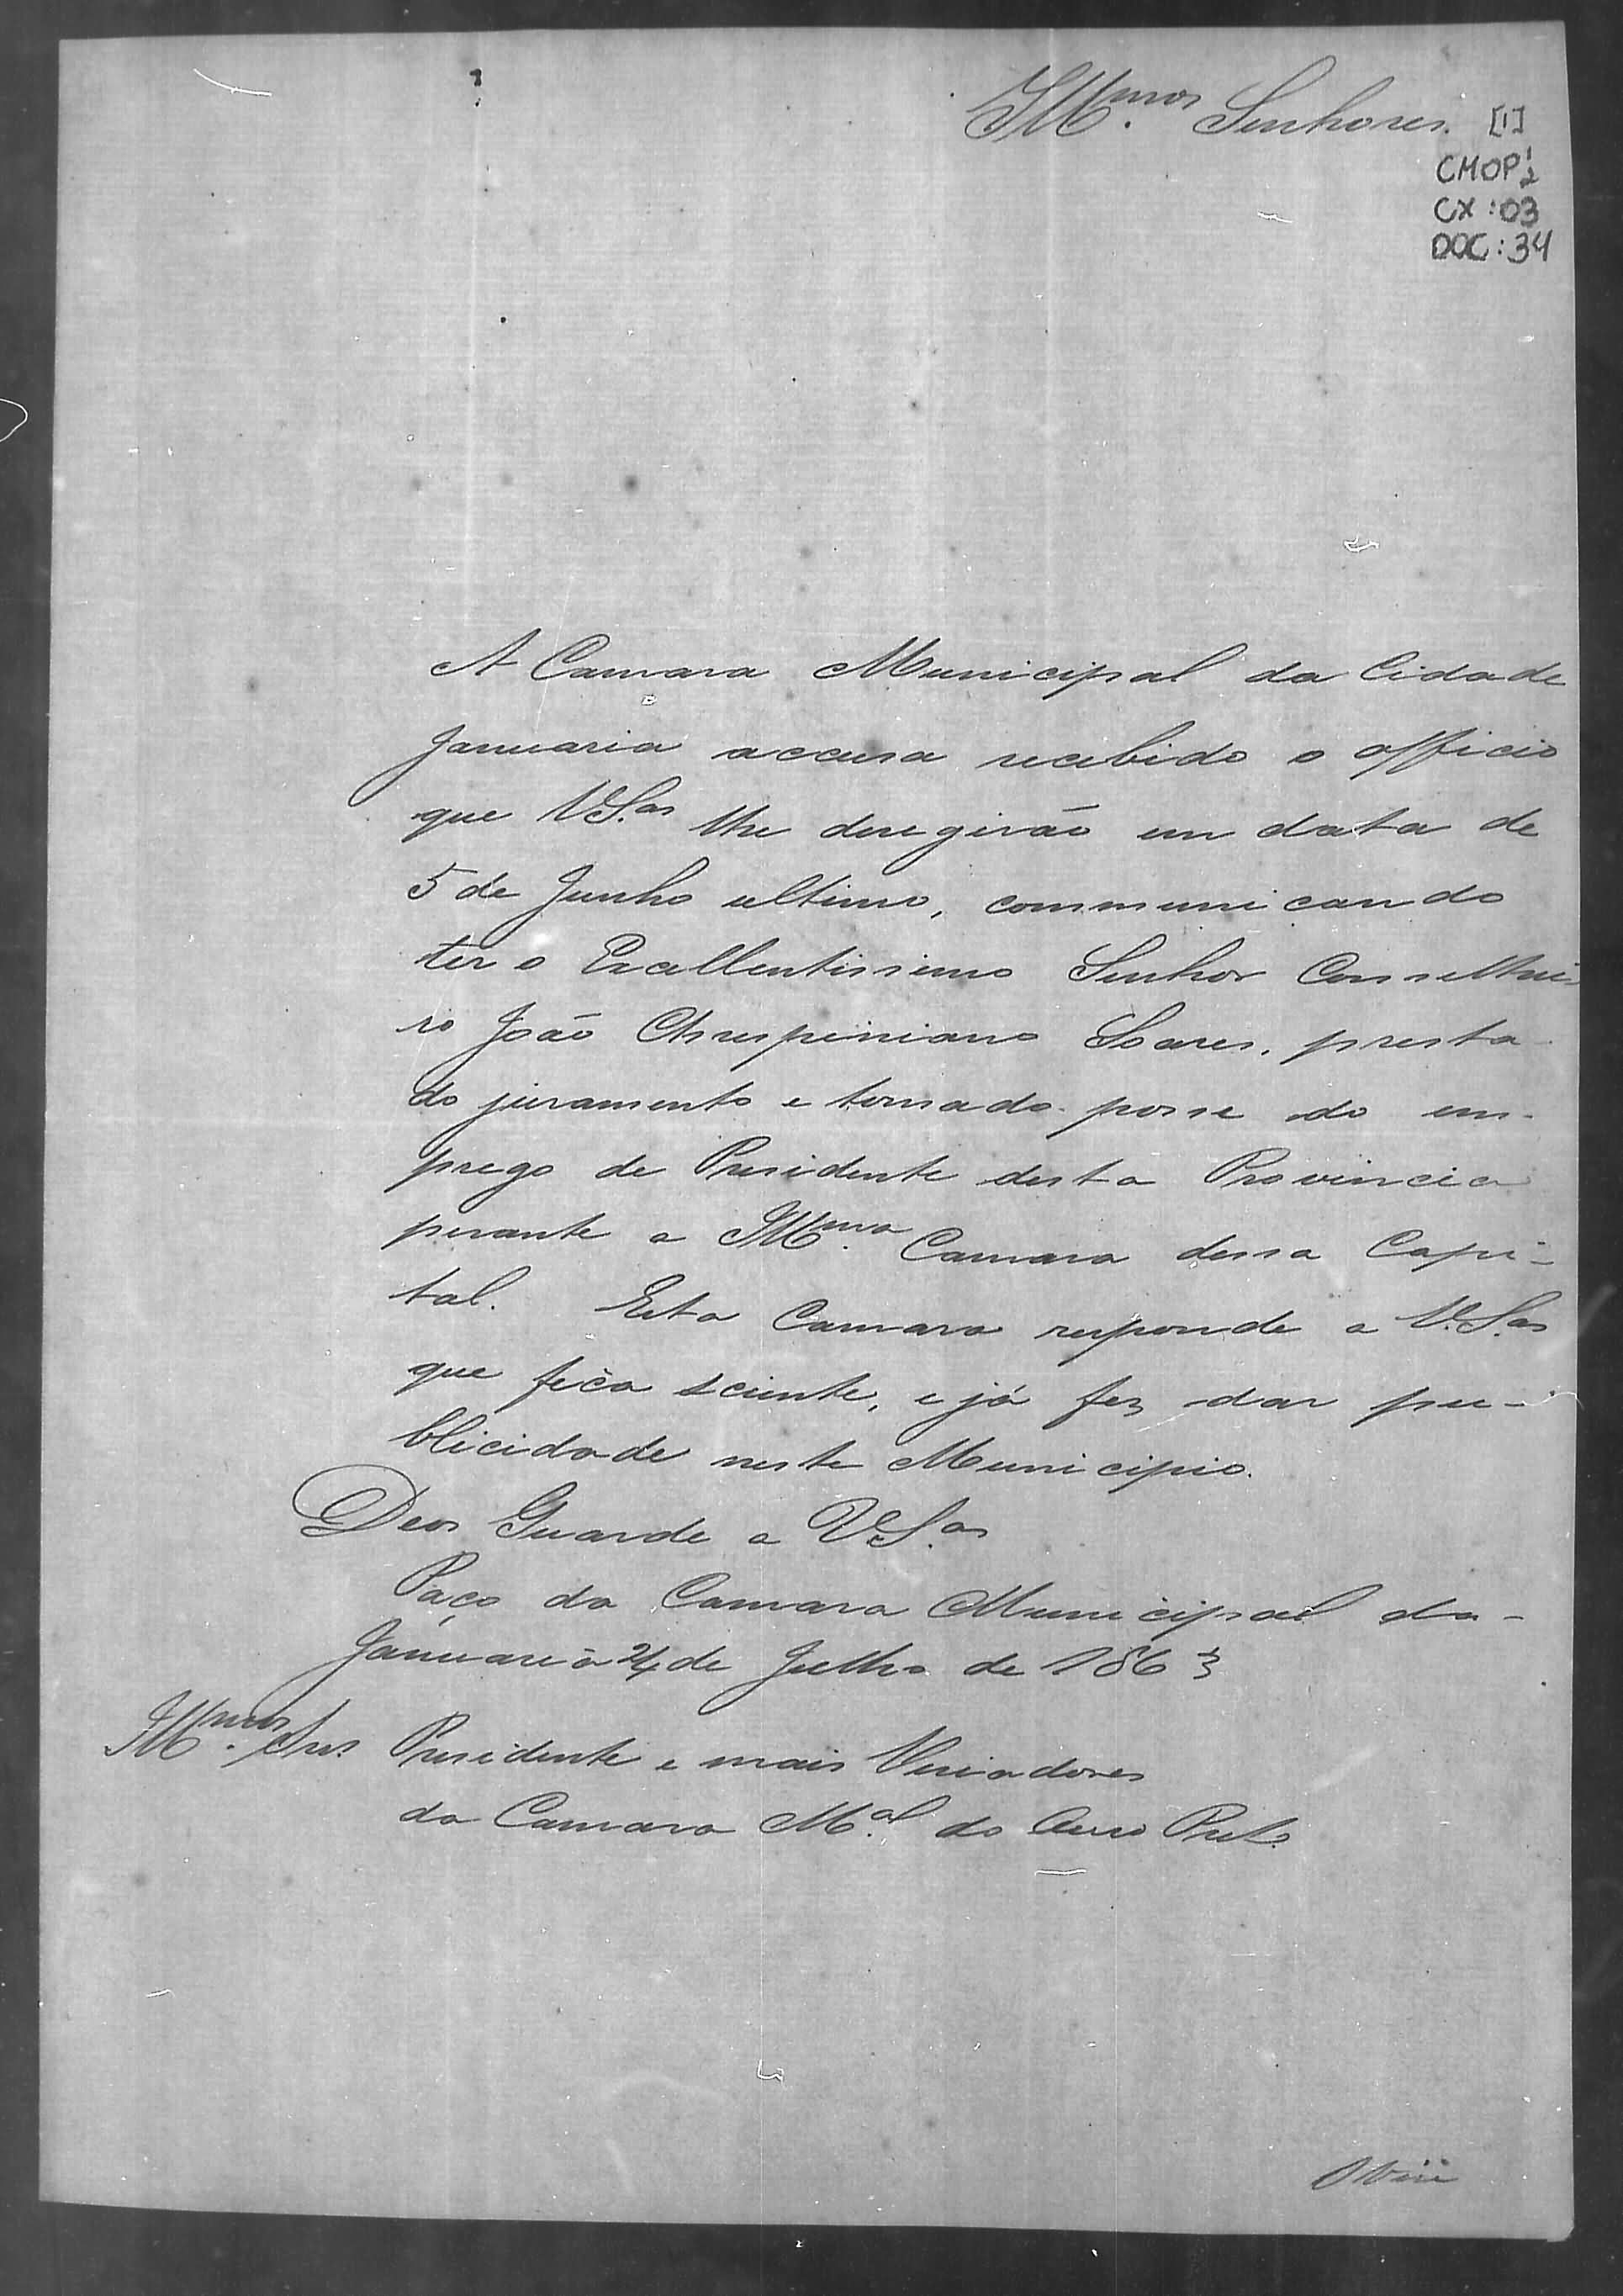 Illmos. Senhores. [1]
CMOP 1/2
CX: 03
DOC: 34
A Camara Municipal da Cidade
Januaria accusa recebido o officio
que VS.as lhe deregirão em data de
5 de Junho ultimo, communicando
ter o Excellentissimo Senhor Conselhei-
ro João Chrespiniano Soares, presta-
do juramento e tomado posse do em-
prego de Presidente desta Provincia
perante a Illma. Camara dessa Capi-
tal. Esta Camara responde a V.S.as
que fica sciente, e já fez dar pu-
blicidade neste Municipio.
Deos Guarde a VS.as
Paço da Camara Municipal da
Januaria 24 de Julho de 1863
Illmos. Snres Presidente e mais Veriadores
da Camara M.al do Ouro Preto